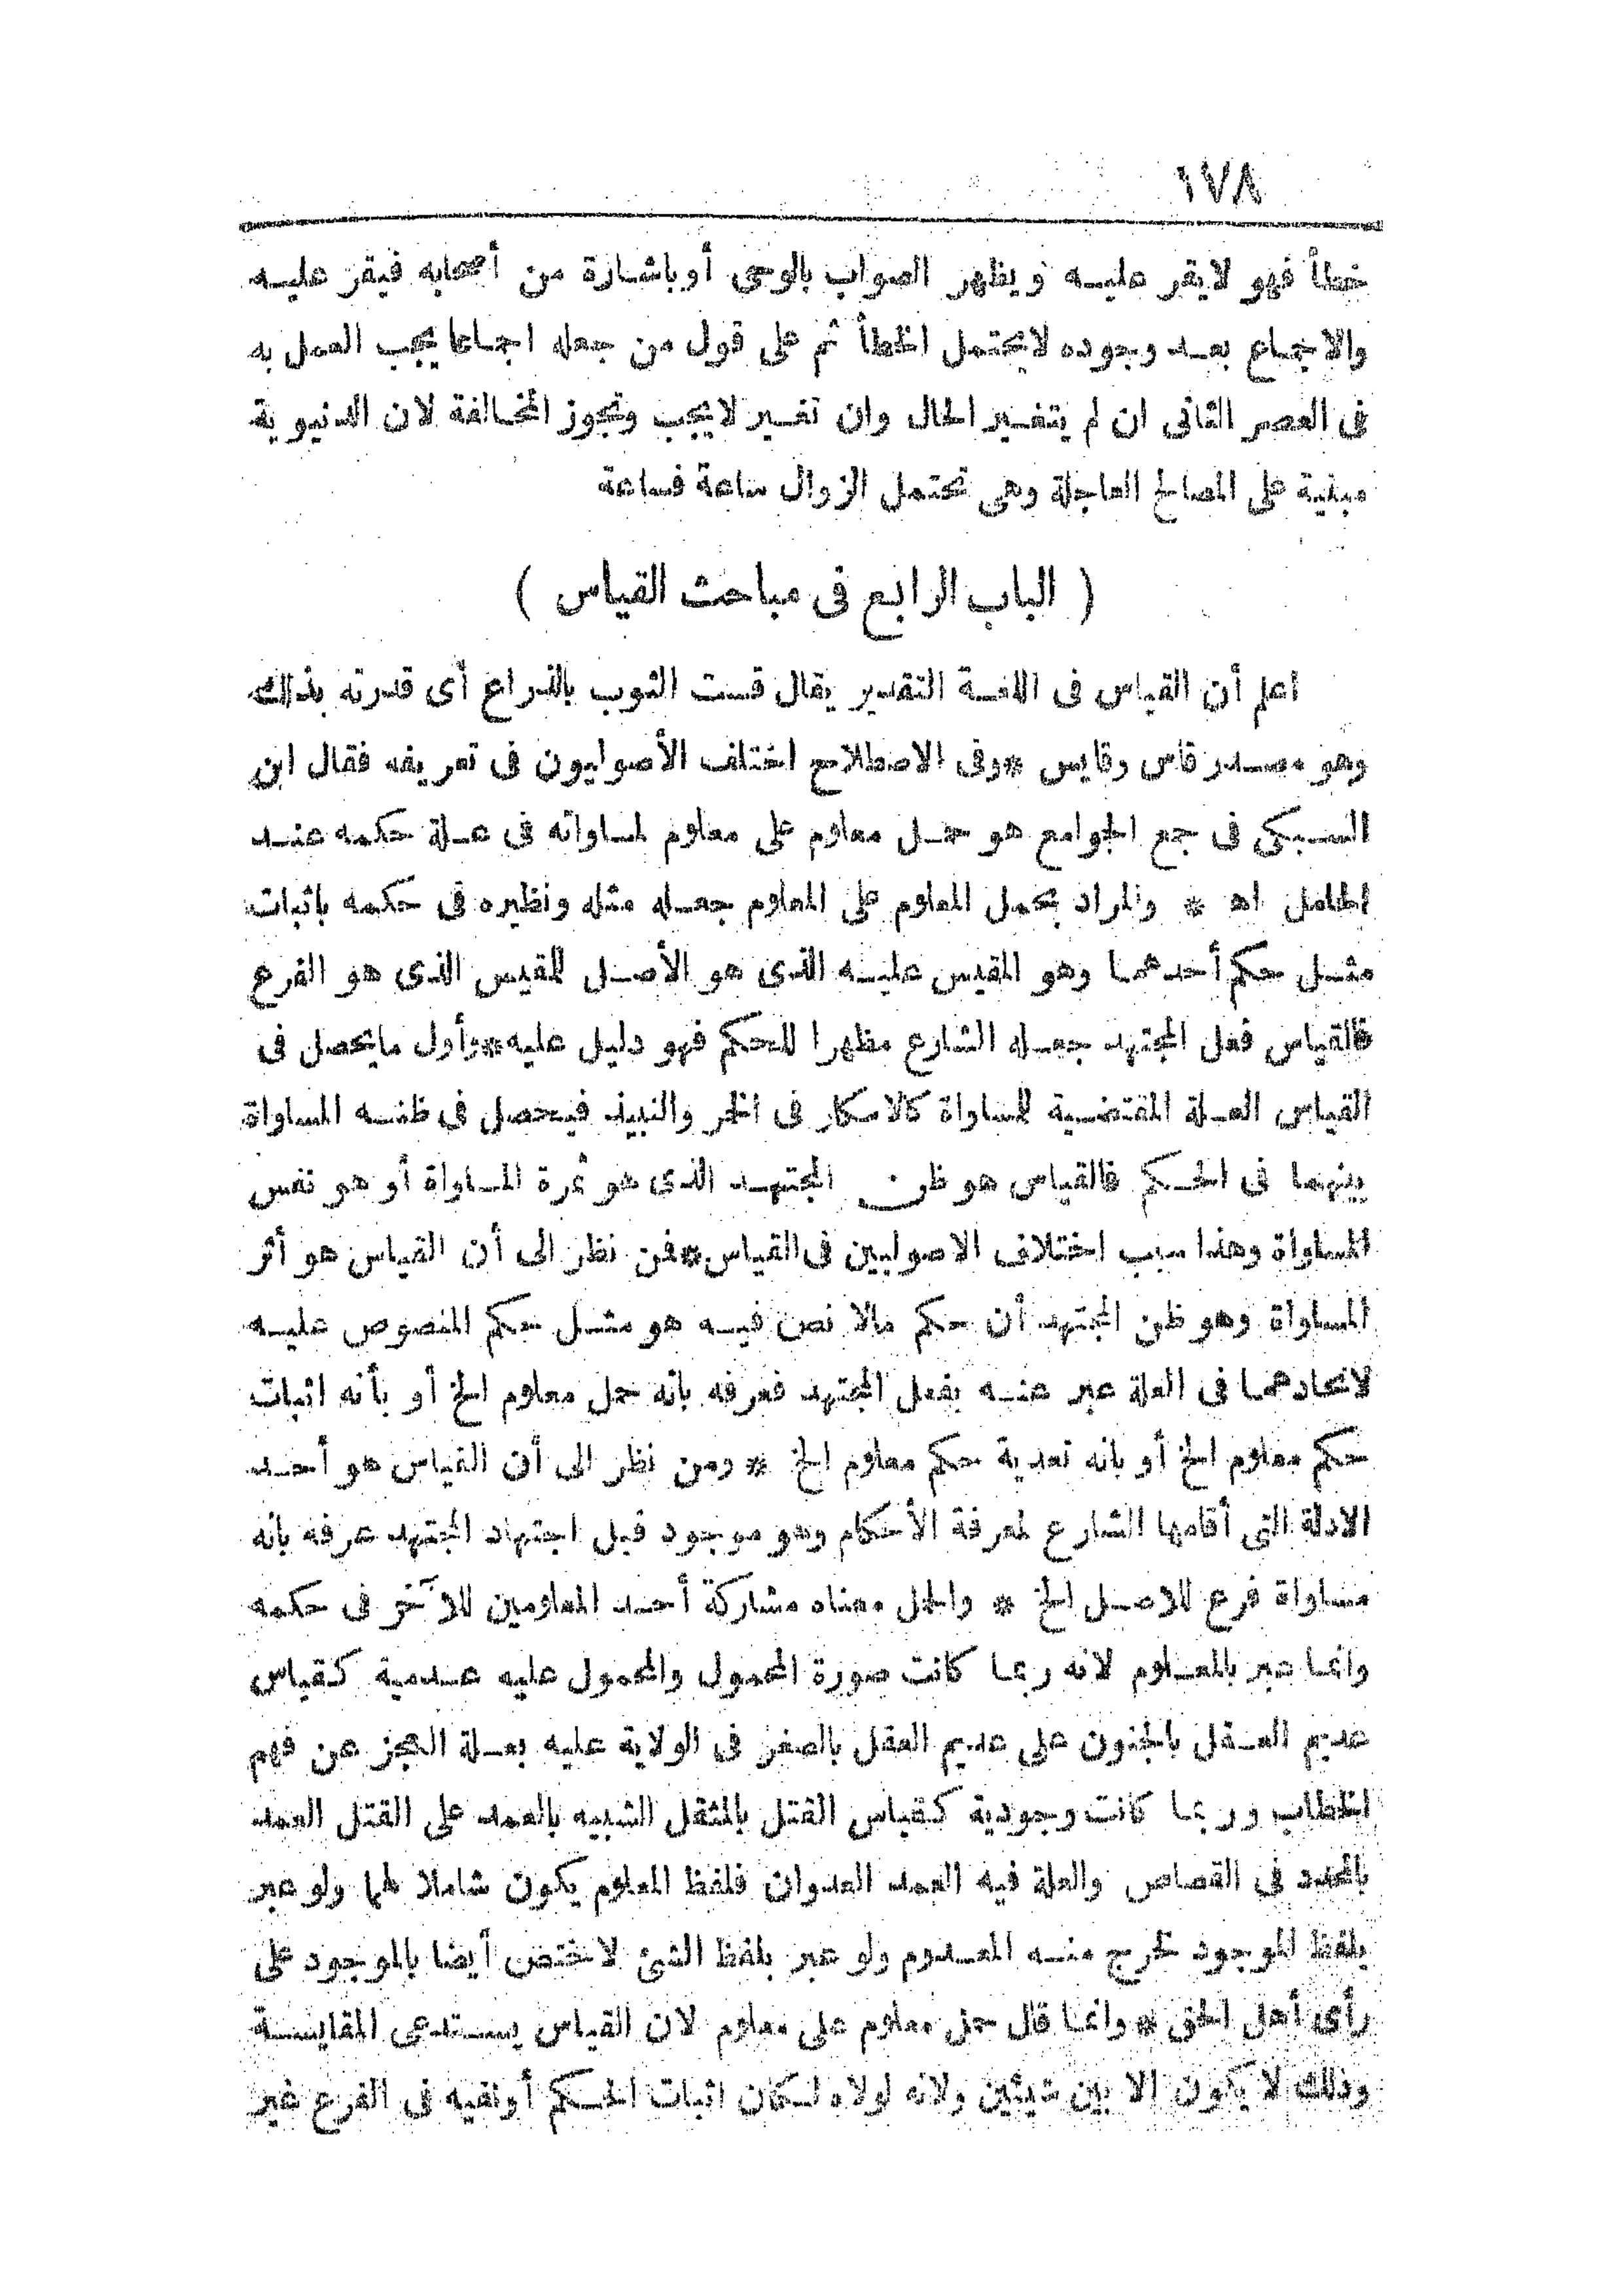 ١٧٨
خطأ فهو لايقر عليه ويظهر الصواب بالوحى أو باشارة من أصحابه فيقر عليه
والاجماع بعد وجوده لايحتمل الخطأ ثم على قول من جعله اجماعا يجب العمل به
فى العصر الثانى ان لم يتغير الحال وان تغير لايجب وتجوز المخالفة لان الدنيوية
مبنية على المصالح العاجلة وهى تحتمل الزوال ساعة فساعة
( الباب الرابع فى مباحث القياس )
اعلم أن القياس فى اللغة التقدير يقال قست الثوب بالذراع أى قدرته بذلك
وهو مصدر قاس وقايس * وفى الاصطلاح اختلف الأصوليون فى تعريفه فقال ابن
السبكى فى جمع الجوامع هو حمل معلوم على معلوم لمساواته فى علة حكمه عند
الحامل اه * والمراد بحمل المعلوم على المعلوم جعله مثله ونظيره فى حكمه باثبات
مثل حكم أحدهما وهو المقيس عليه الذى هو الأصل للمقيس الذى هو الفرع
فالقياس فعل المجتهد جعله الشارع مظهرا للحكم فهو دليل عليه * وأول مايحصل فى
القياس العلة المقتضية للمساواة كالاسكار فى الخمر والنبيذ فيحصل فى ظنه المساواة
بينهما فى الحكم فالقياس هو ظن المجتهد الذى هو ثمرة المساواة أو هو نفس
المساواة وهذا سبب اختلاف الاصوليين فى القياس * فمن نظر الى أن القياس هو أثر
المساواة وهو ظن المجتهد أن حكم مالا نص فيه هو مثل حكم المنصوص عليه
لاتحادهما فى العلة عبر عنه بفعل المجتهد فعرفه بانه حمل معلوم الخ أو بأنه اثبات
حكم معلوم الخ أو بانه تعدية حكم معلوم الخ * ومن نظر الى أن القياس هو أحد
الادلة التى أقامها الشارع لمعرفة الأحكام وهو موجود قبل اجتهاد المجتهد عرفه بانه
مساواة فرع للاصل الخ * والحمل معناه مشاركة أحد المعلومين للآخر فى حكمه
وانما عبر بالمعلوم لانه ربما كانت صورة المحمول والمحمول عليه عدمية كقياس
عديم العقل بالجنون على عديم العقل بالصغر فى الولاية عليه بعلة العجز عن فهم
الخطاب وربما كانت وجودية كقياس القتل بالمثقل الشبيه بالعمد على القتل العمد
بالمحدد فى القصاص والعلة فيه العمد العدوان فلفظ المعلوم يكون شاملا لهما ولو عبر
بلفظ الموجود لخرج منه المعدوم ولو عبر بلفظ الشئ لاختص أيضا بالموجود على
رأى أهل الحق * وانما قال حمل معلوم على معلوم لان القياس يستدعى المقايسة
وذلك لا يكون الا بين شيئين ولانه لولاه لكان اثبات الحكم أونفيه فى الفرع غير